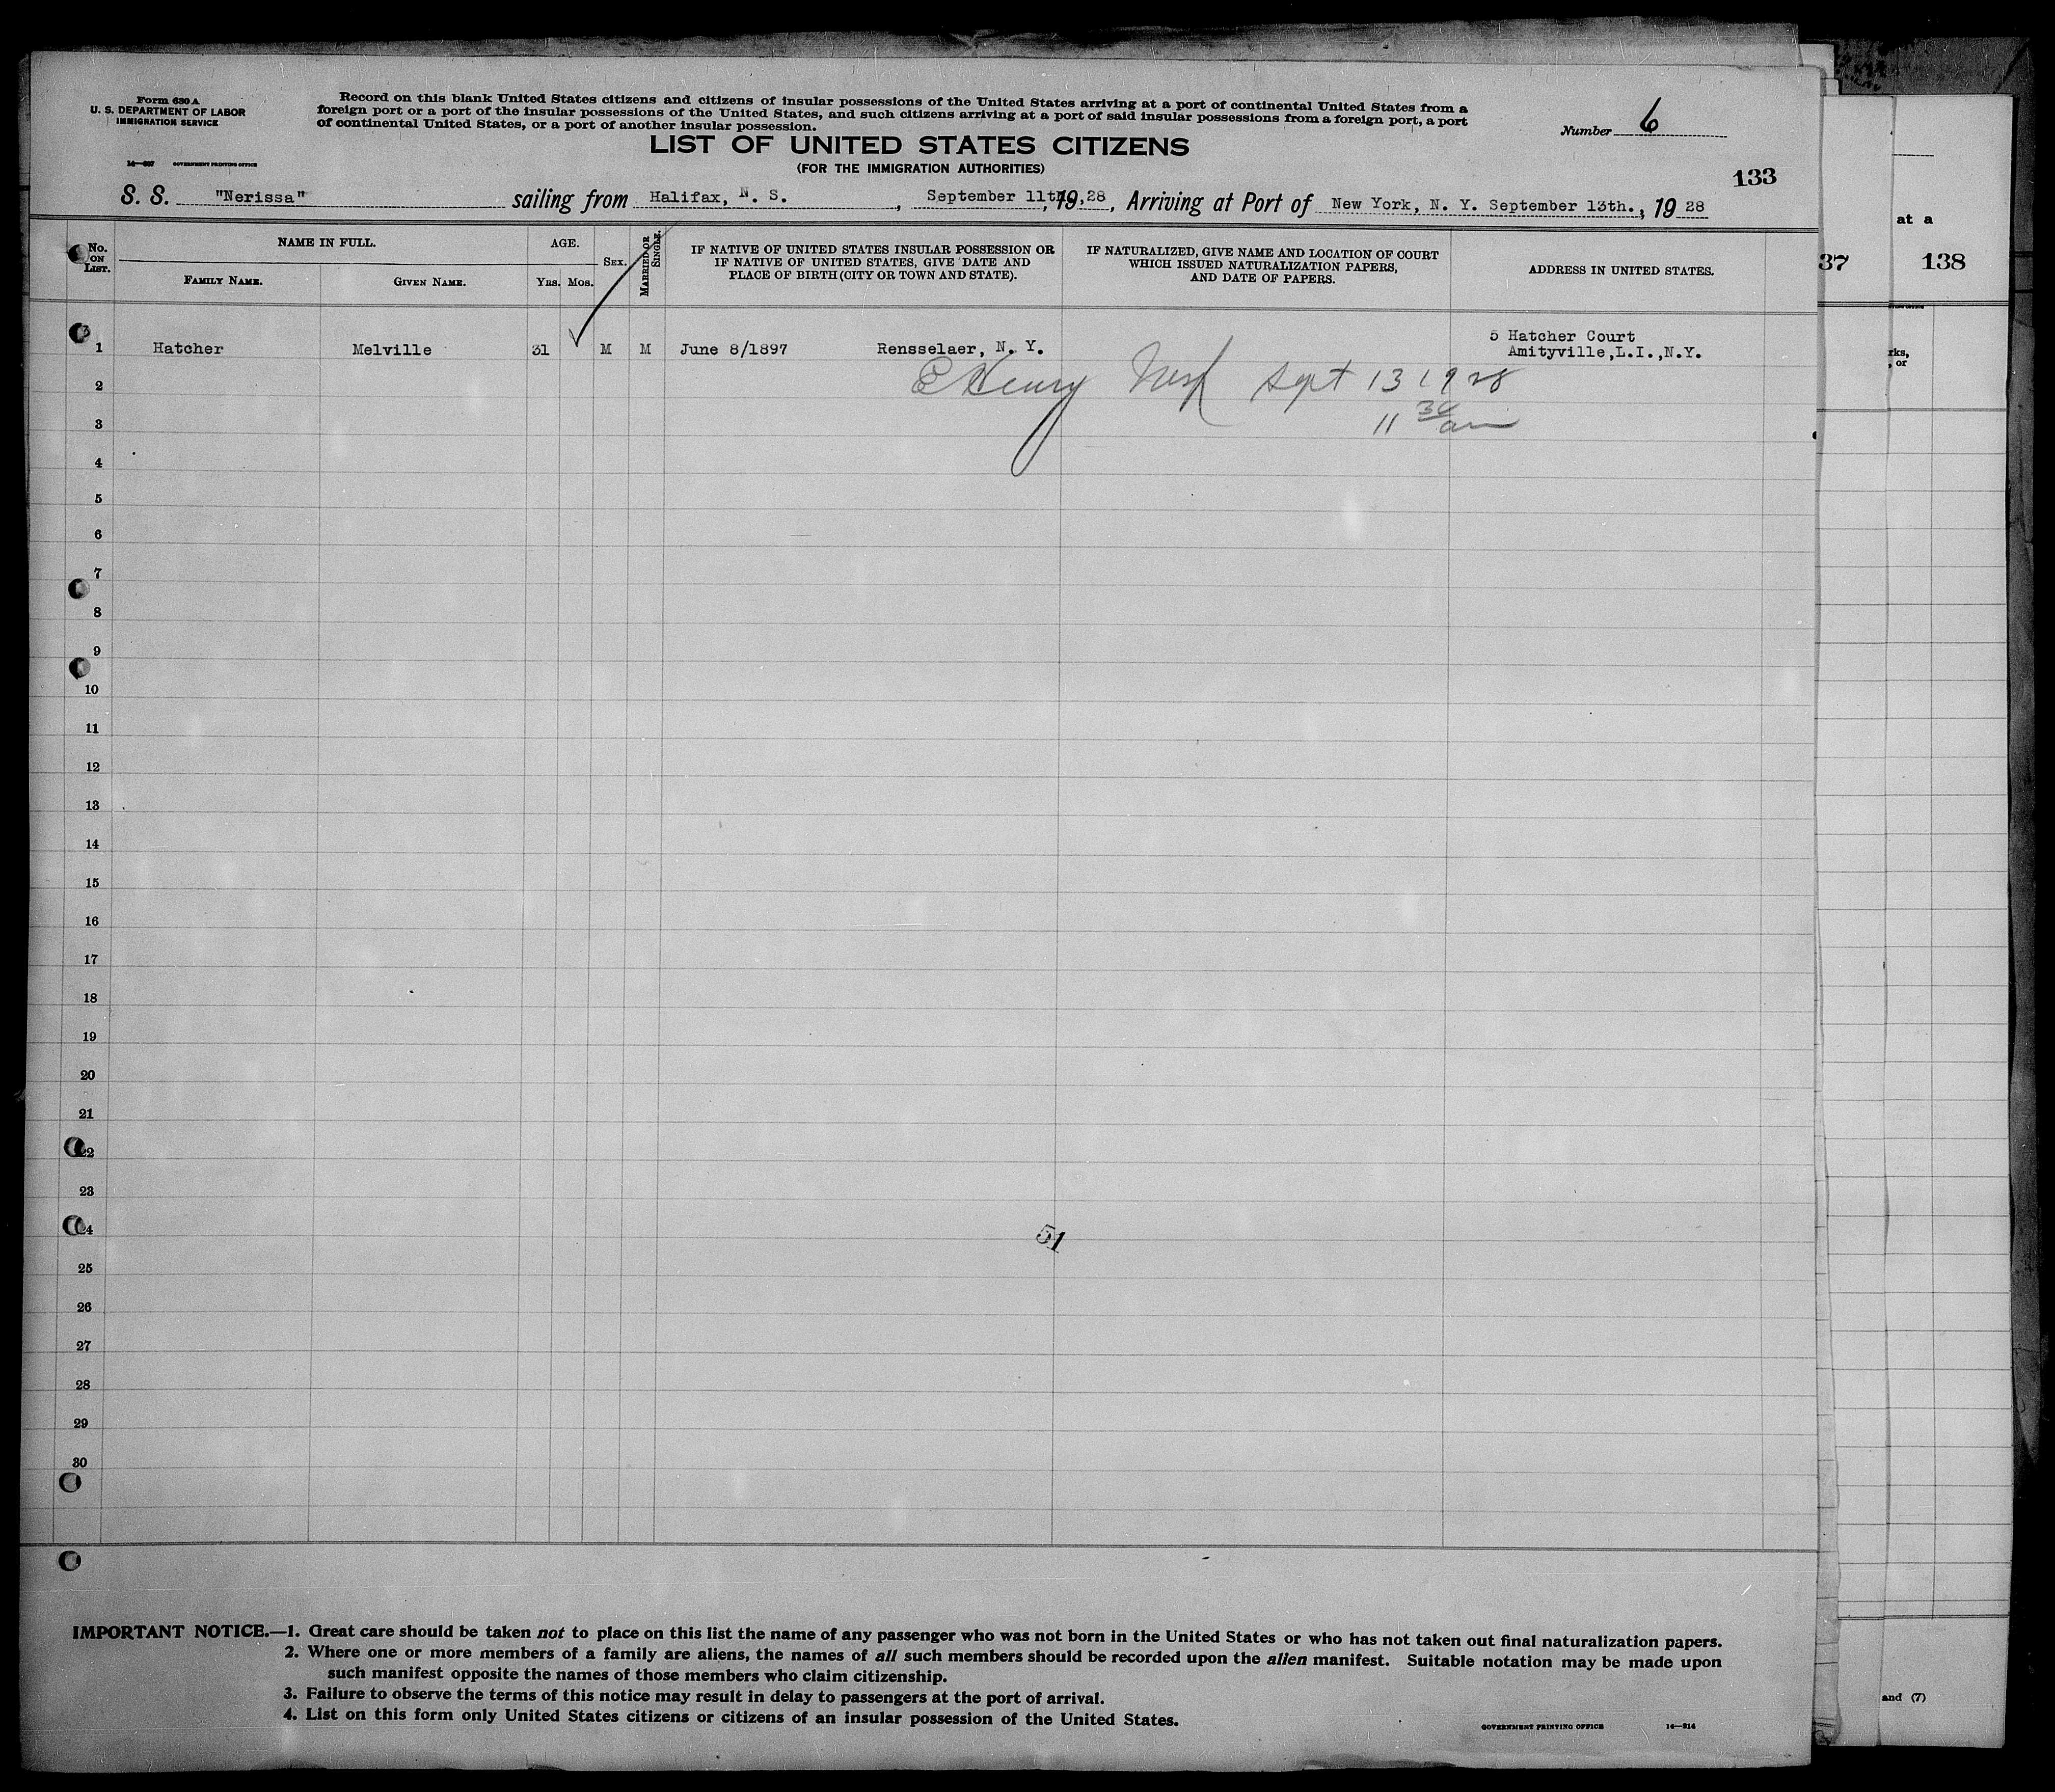 Form 630 A
U. S. DEPARTMENT OF LABOR
IMMIGRATION SERVICE
GOVERNMENT PRINTING OFFICE
Record on this blank United States citizens and citizens of insular possessions of the United States arriving at a port of continental United States from a
foreign port or a port of the insular possessions of the United States, and such citizens arriving at a port of said insular possessions from a foreign port, a port
of continental United States, or a port of another insular possession.
Number 6
LIST OF UNITED STATES CITIZENS
(FOR THE IMMIGRATION AUTHORITIES)
133
S. S. "Nerissa" sailing from Halifax, N. S., September 11th, 1928, Arriving at Port of New York, N. Y. September 13th., 1928
No. ON LIST.
NAME IN FULL.
FAMILY NAME.
GIVEN NAME.
AGE.
YRS. MOS.
SEX.
MARRIED OR SINGLE.
IF NATIVE OF UNITED STATES INSULAR POSSESSION OR
IF NATIVE OF UNITED STATES, GIVE DATE AND
PLACE OF BIRTH (CITY OR TOWN AND STATE).
IF NATURALIZED, GIVE NAME AND LOCATION OF COURT
WHICH ISSUED NATURALIZATION PAPERS,
AND DATE OF PAPERS.
ADDRESS IN UNITED STATES.
1 Hatcher Melville 31 M M June 8/1897 Rensselaer, N. Y. 5 Hatcher Court
Amityville,L.I.,N.Y.
2 Henry Sept 13 1928
3 11 30 am
4
5
6
7
8
9
10
11
12
13
14
15
16
17
18
19
20
21
22
23
24
51
25
26
27
28
29
30
IMPORTANT NOTICE.—1. Great care should be taken not to place on this list the name of any passenger who was not born in the United States or who has not taken out final naturalization papers.
2. Where one or more members of a family are aliens, the names of all such members should be recorded upon the alien manifest. Suitable notation may be made upon
such manifest opposite the names of those members who claim citizenship.
3. Failure to observe the terms of this notice may result in delay to passengers at the port of arrival.
4. List on this form only United States citizens or citizens of an insular possession of the United States.
GOVERNMENT PRINTING OFFICE 14—214
at a
37
138
rks,
, or
and (7)